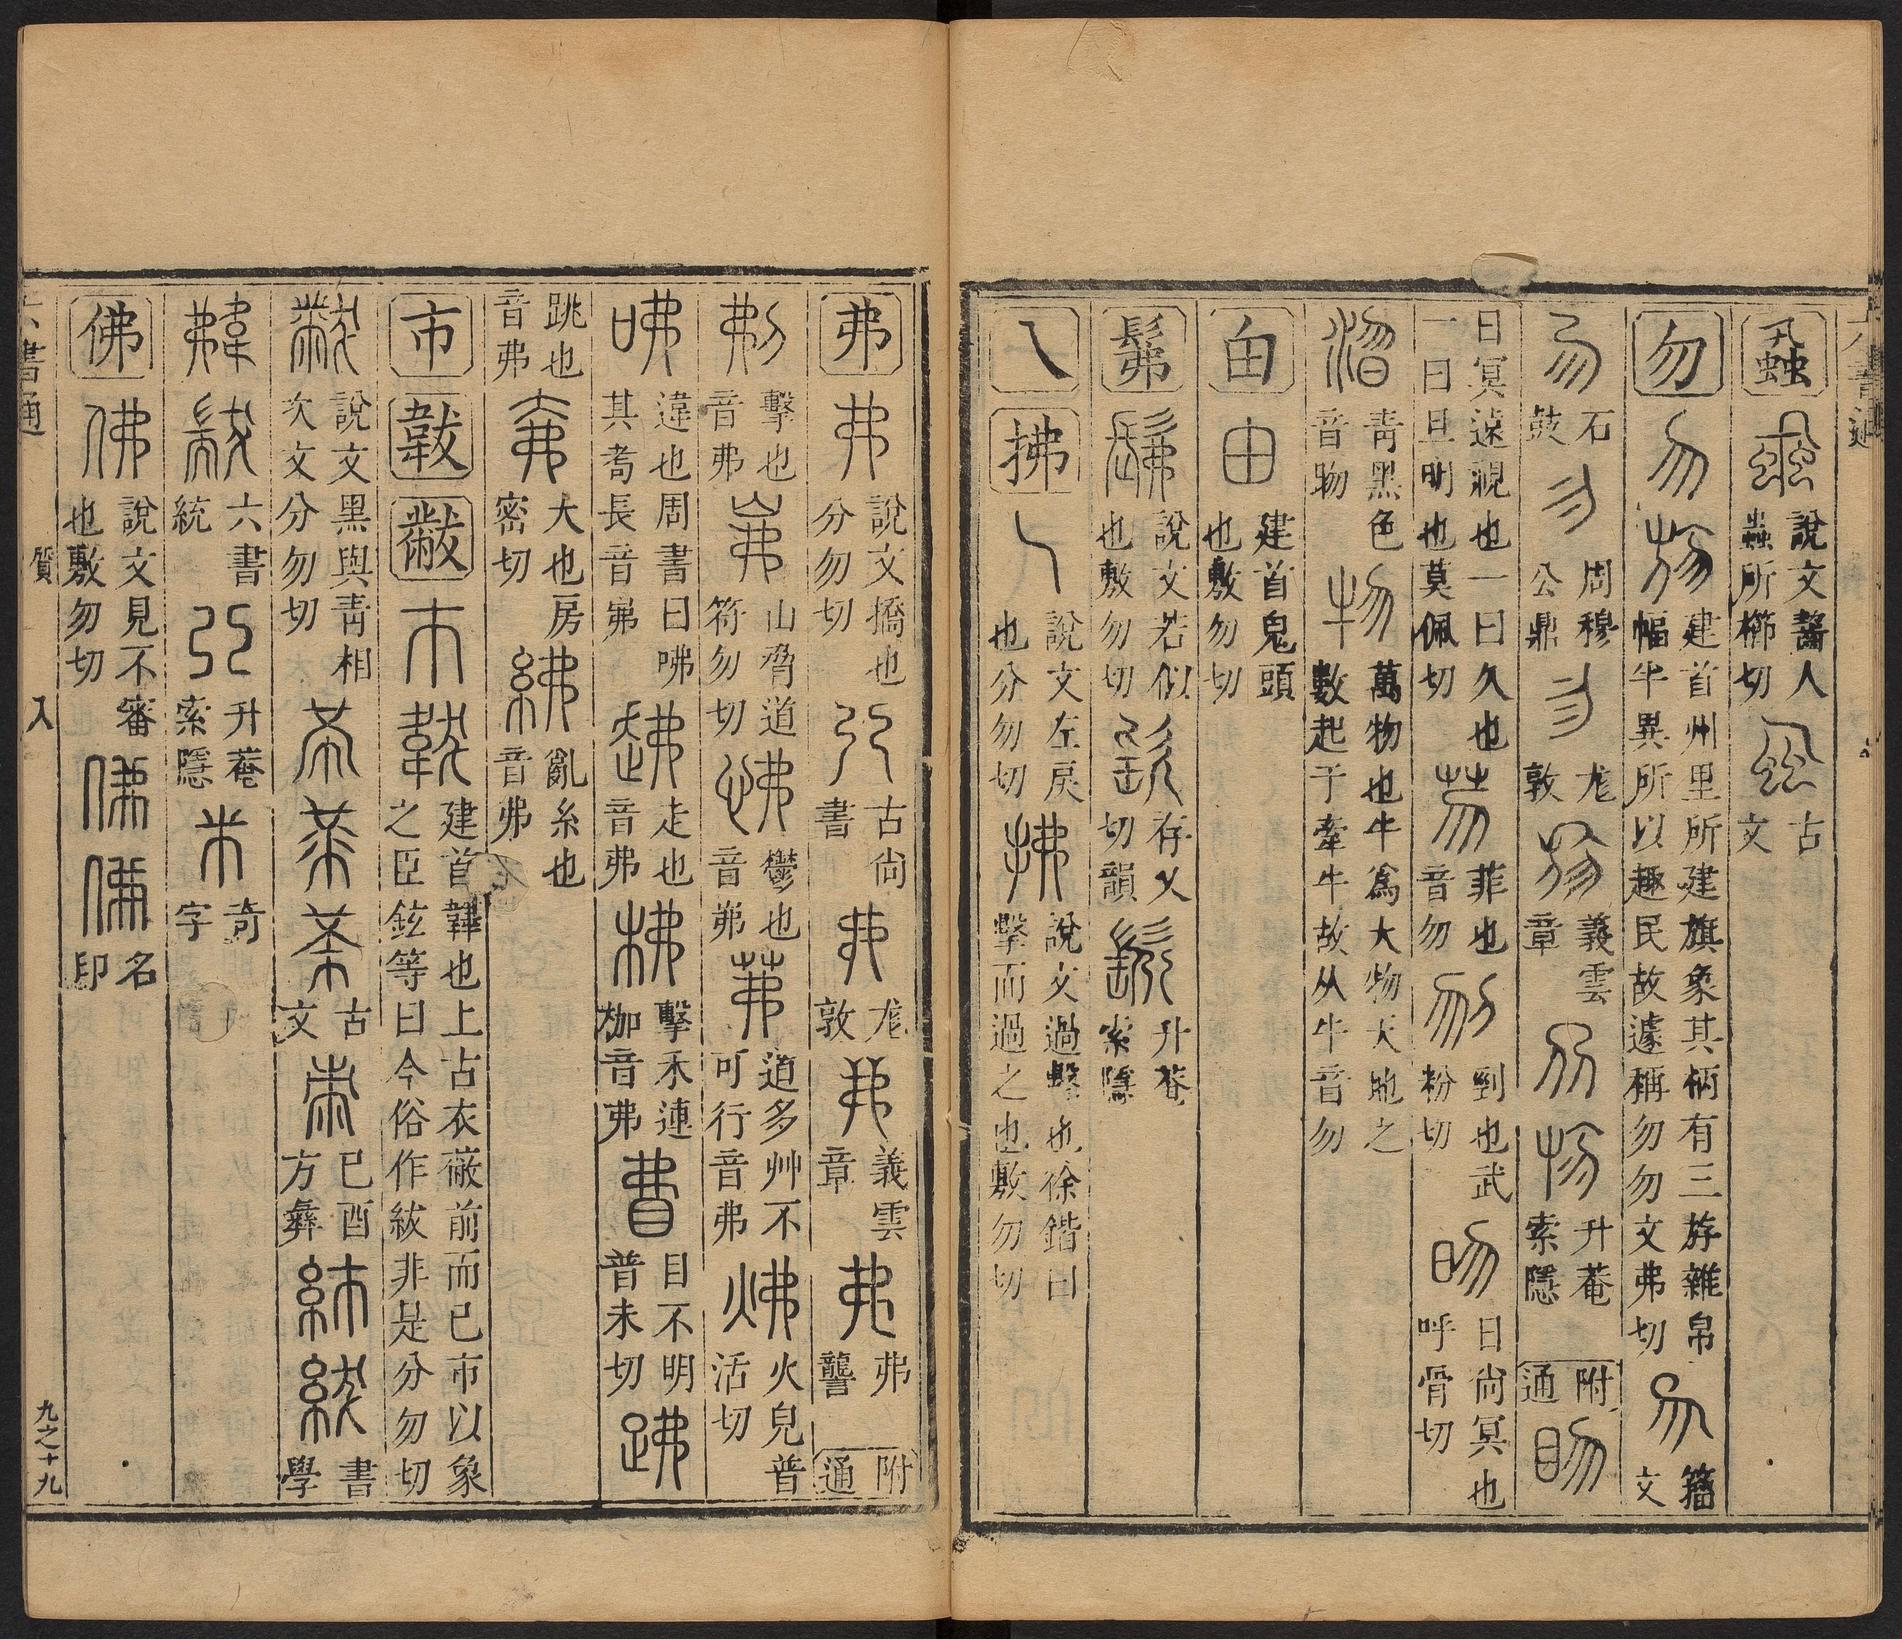 六書通
蝨 蝨 說文齧人蟲所櫛切 古文
勿 勿 建首州里所建旗象其柄有三斿雜帛幅半異所以趣民故遽稱勿勿文弗切 勿 籀文
勿 石鼓 勿 周穆公鼎 勿 尨敦 義雲章 升菴索隱 附通 眒
目冥遠視也一曰久也一曰旦明也莫佩切 芴 菲也音勿 刎 剄也武粉切 昒 日尚冥也呼骨切
淴 青黑色音物 物 萬物也牛爲大物天地之數起于牽牛故从牛音勿
甶 甶 建首鬼頭也敷勿切
髴 髴 說文若似也敷勿切 存乂切韻 升菴索隱
乀 拂 乀 說文左戾也分勿切 拂 說文過擊也徐鍇曰擊而過之也敷勿切
弗 弗 說文撟也分勿切 古尚書 弗 尨敦 弗 義雲章 弗 弗讐 附通
刜 擊也音弗 岪 山脅道符勿切 怫 鬱也音弗 茀 道多艸不可行音弗 炥 火皃普活切
咈 違也周書曰咈其耇長音弗 走也音弗 柫 擊禾連枷音弗 䀟 目不明普未切 跰
跳也音弗 大也房密切 紼 亂糸也音弗
市 韍 黻 市 韍 建首韠也上古衣蔽前而已市以象之臣鉉等曰今俗作紱非是分勿切
黻 說文黑與靑相次文分勿切 古文 已酉方彝 書學
六書統 升菴索隱 奇字
佛 佛 說文見不審也敷勿切 名印
六書通 質 入 九之十九